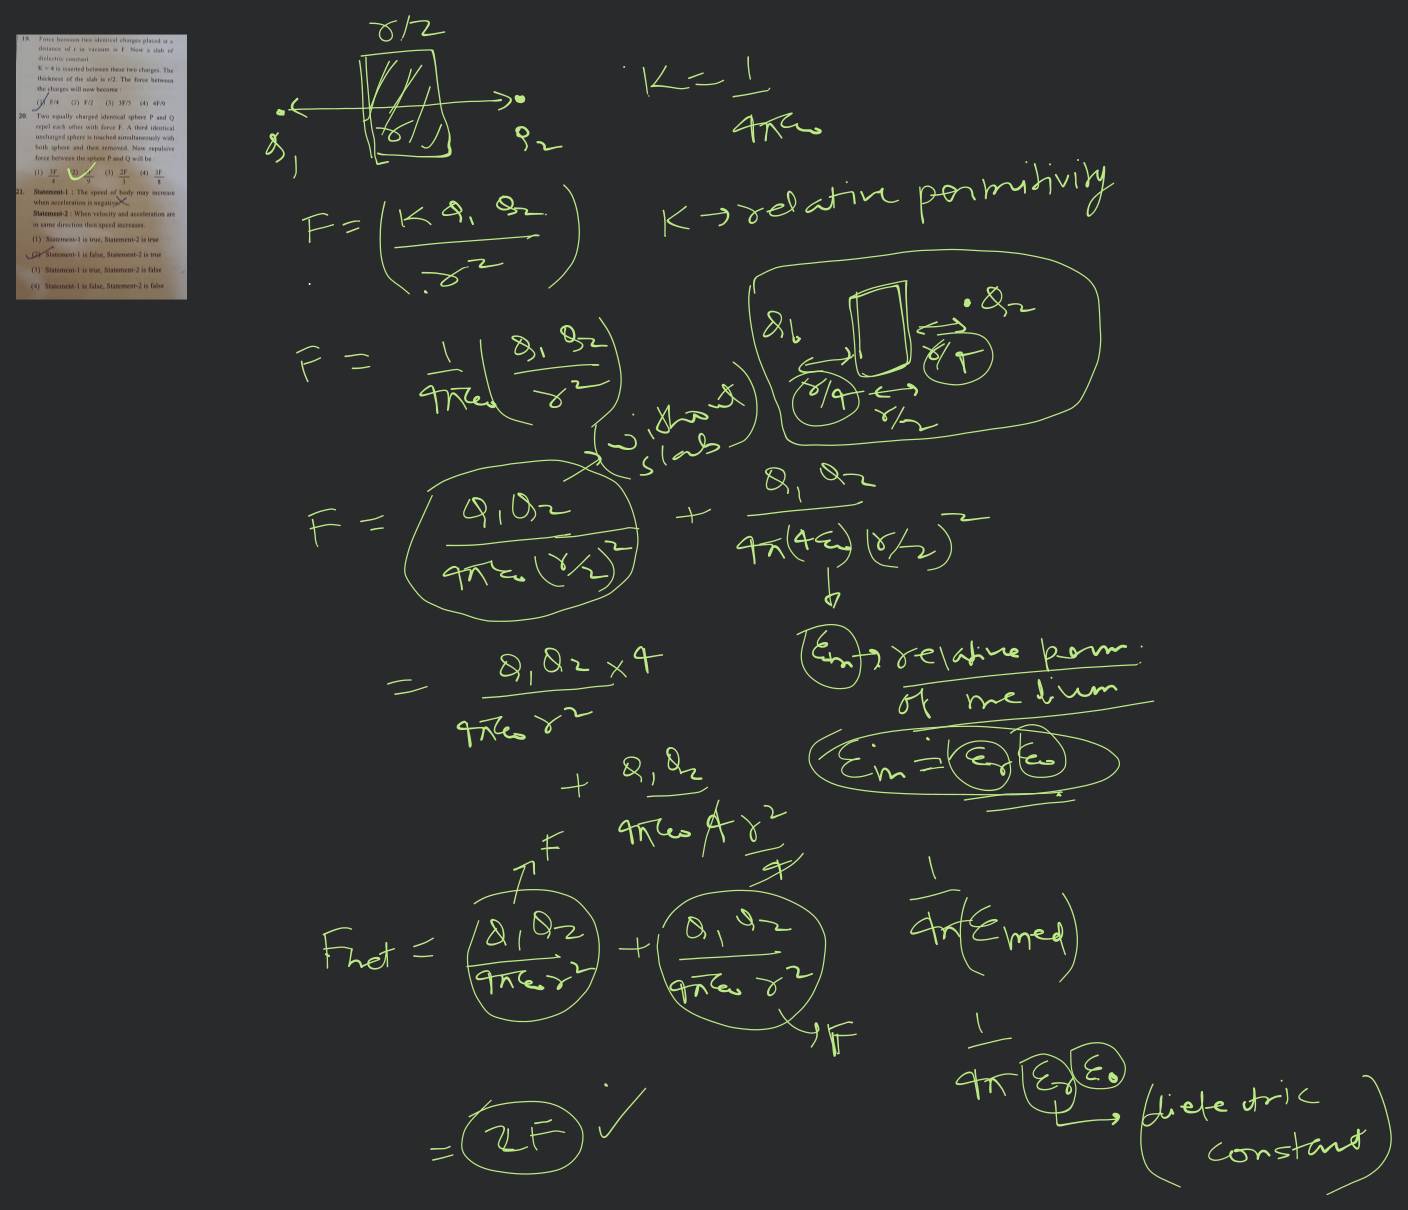 19. Force between two identical charges placed at a
distance of r in vacuum is F. Now a slab of
dielectric constant
K = 4 is inserted between these two charges. The
thickness of the slab is r/2. The force between
the charges will now become :
(1) F/4 (2) F/2 (3) 3F/5 (4) 4F/9
20. Two equally charged identical sphere P and Q
repel each other with force F. A third identical
uncharged sphere is touched simultaneously with
both sphere and then removed. Now repulsive
force between the sphere P and Q will be
(1) 3F/4 (2) /9 (3) 2F/3 (4) 3F/8
21. Statement-1 : The speed of body may increase
when acceleration is negative
Statement-2 : When velocity and acceleration are
in same direction then speed increases.
(1) Statement-1 is true, Statement-2 is true
(2) Statement-1 is false, Statement-2 is true
(3) Statement-1 is true, Statement-2 is false
(4) Statement-1 is false, Statement-2 is false
r/2
r
Q1
Q2
K = 1/4πε0
F = (K Q1 Q2 / r²)
K → relative permitivity
Q1
Q2
r/4
r/4
r/2
F = 1/4πε0 (Q1 Q2 / r²)
(without
slab)
F = Q1Q2 / 4πε0 (r/2)² + Q1 Q2 / 4π(4ε0) (r/2)²
εm → relative perm.
of medium
= Q1 Q2 x 4 / 4πε0 r²
εm = εr ε0
+ Q1 Q2 / 4πε0 4 r²/4
F
1/4π(εmed)
Fnet = Q1Q2 / 4πε0 r² + Q1 Q2 / 4πε0 r²
F
1/4π εr ε0
(dielectric
constant)
= 2F ✓